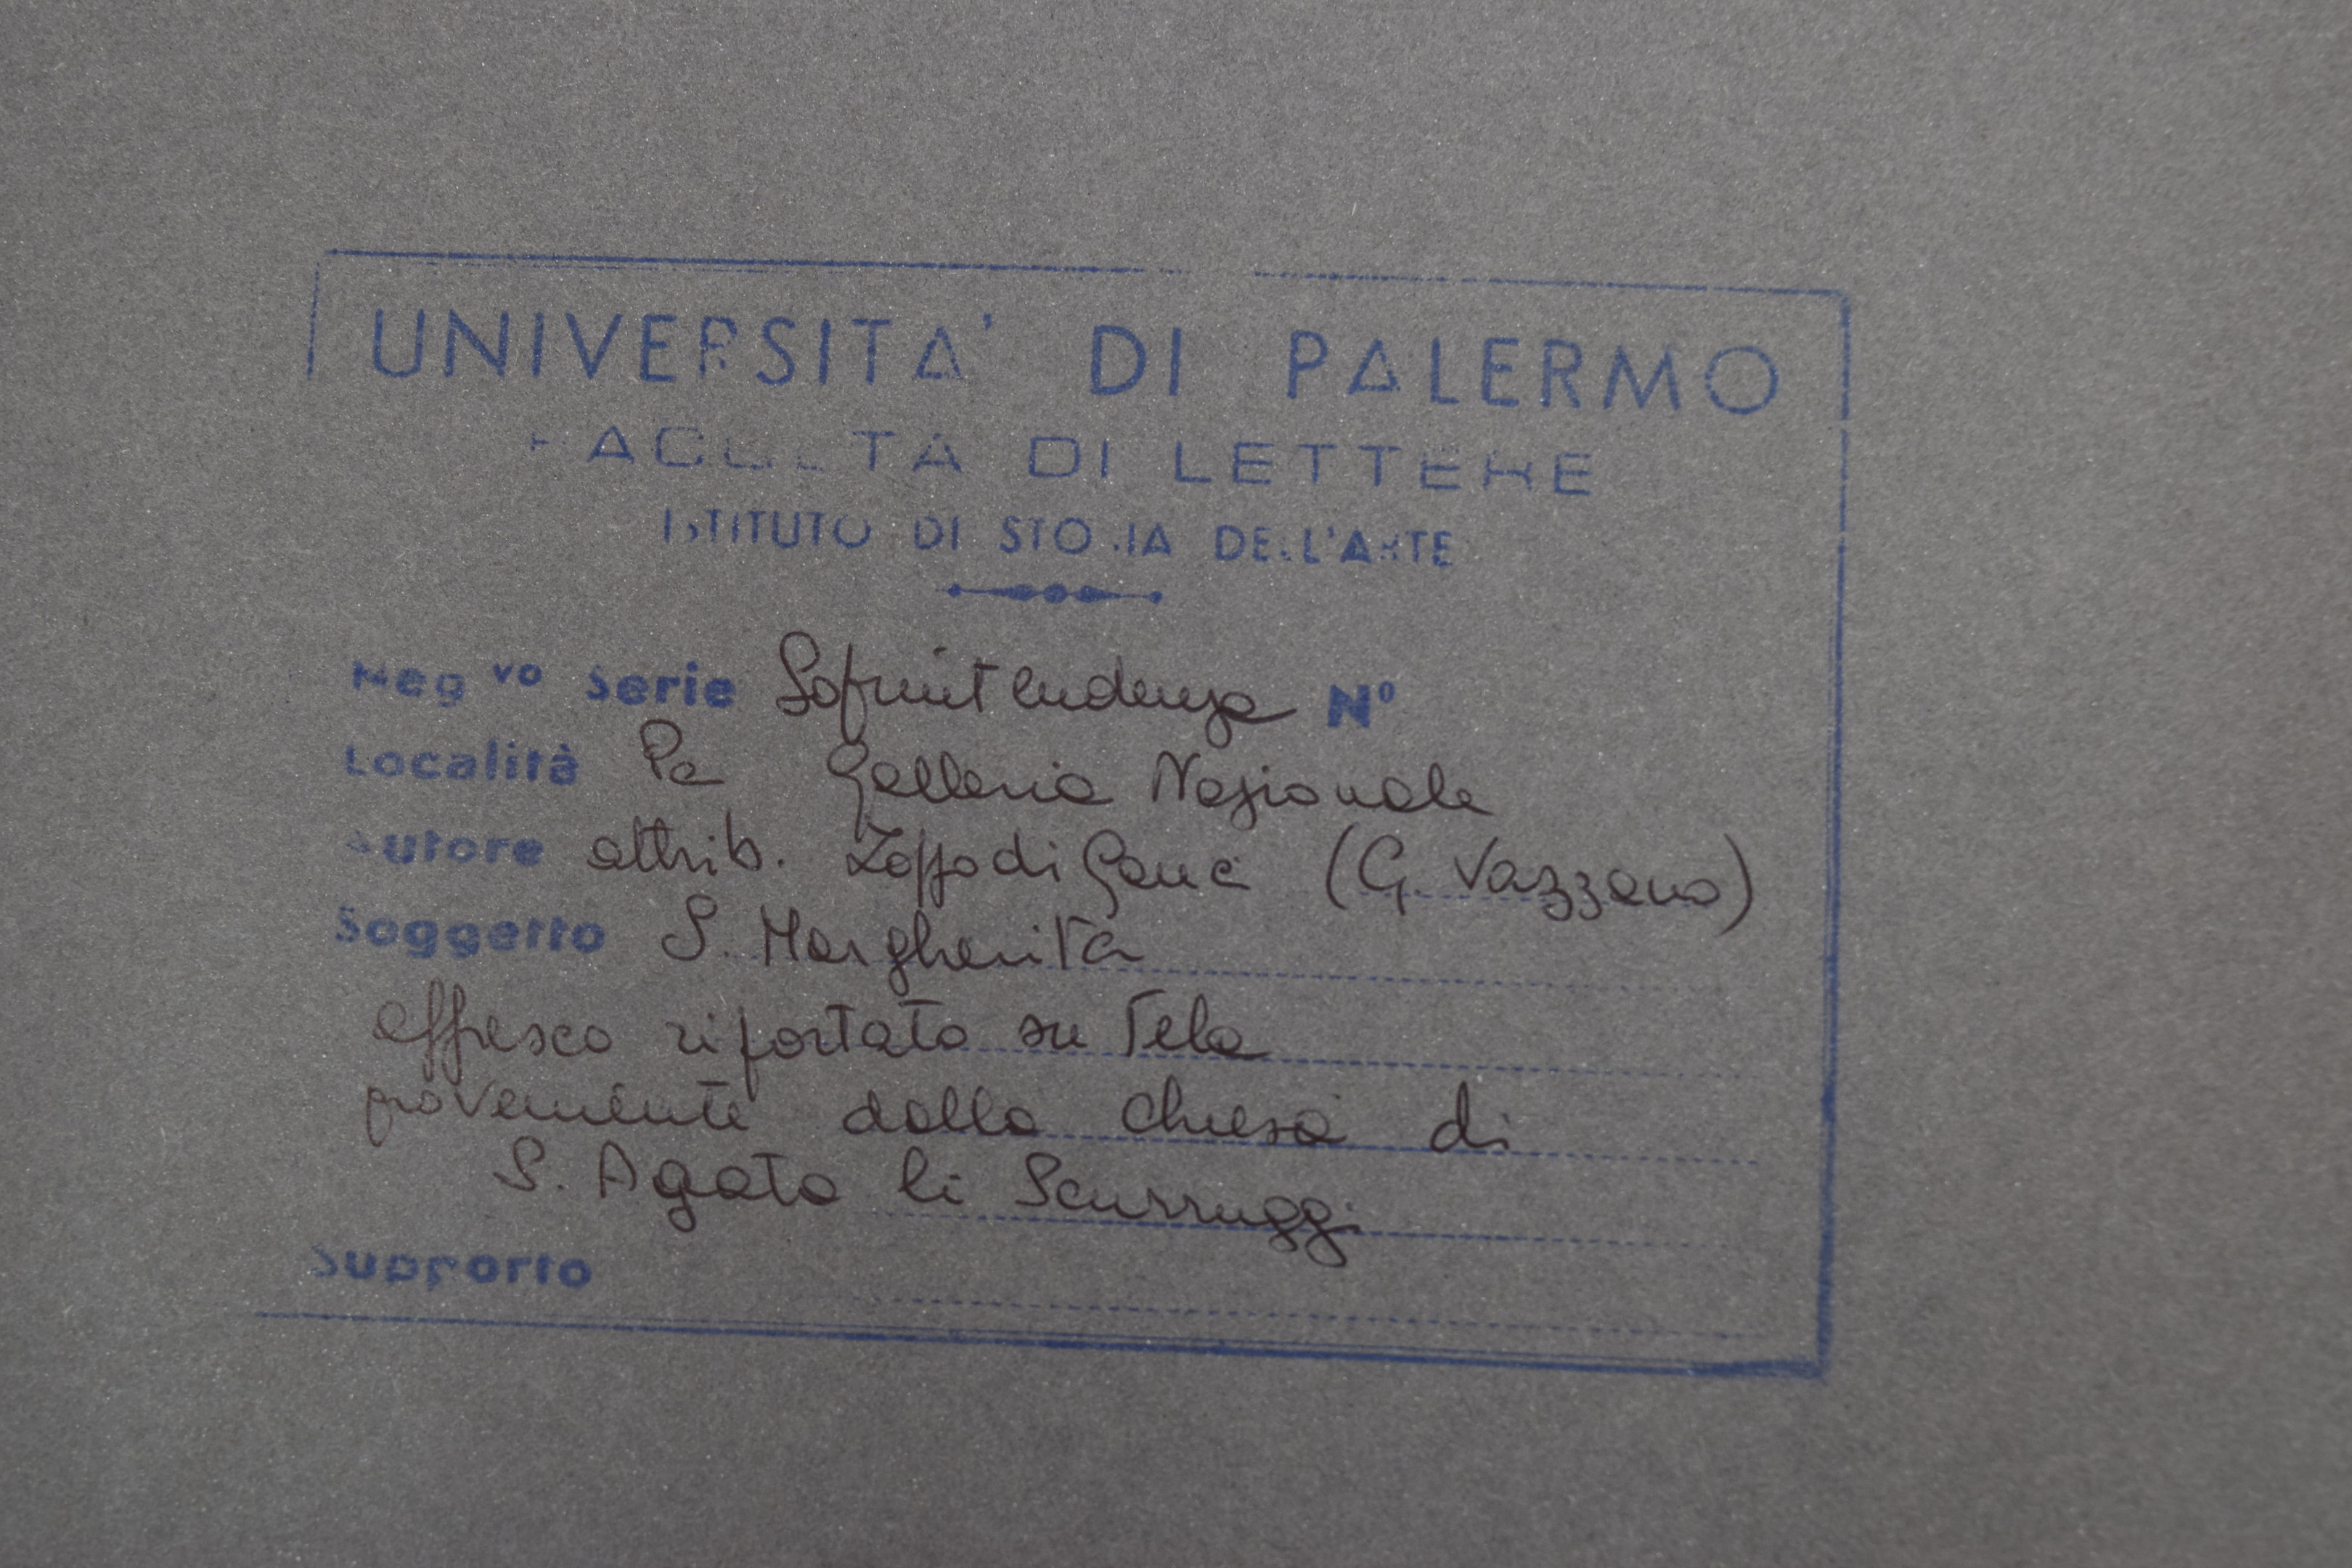 UNIVERSITA' DI PALERMO
FACOLTA DI LETTERE
ISTITUTO DI STORIA DELL'ARTE
Neg vo Serie Soprintendenza N°
Località Pa Galleria Nazionale
Autore attrib. Zoppo di Ganci (G. Vazzano)
Soggetto S. Margherita
affresco riportato su tela
proveniente dalla chiesa di
S. Agata li Scurruggi
Supporto